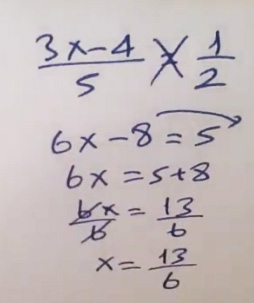 3x-4/5 = 1/2
6x-8=5
6x=5+8
6x/6=13/6
x=13/6